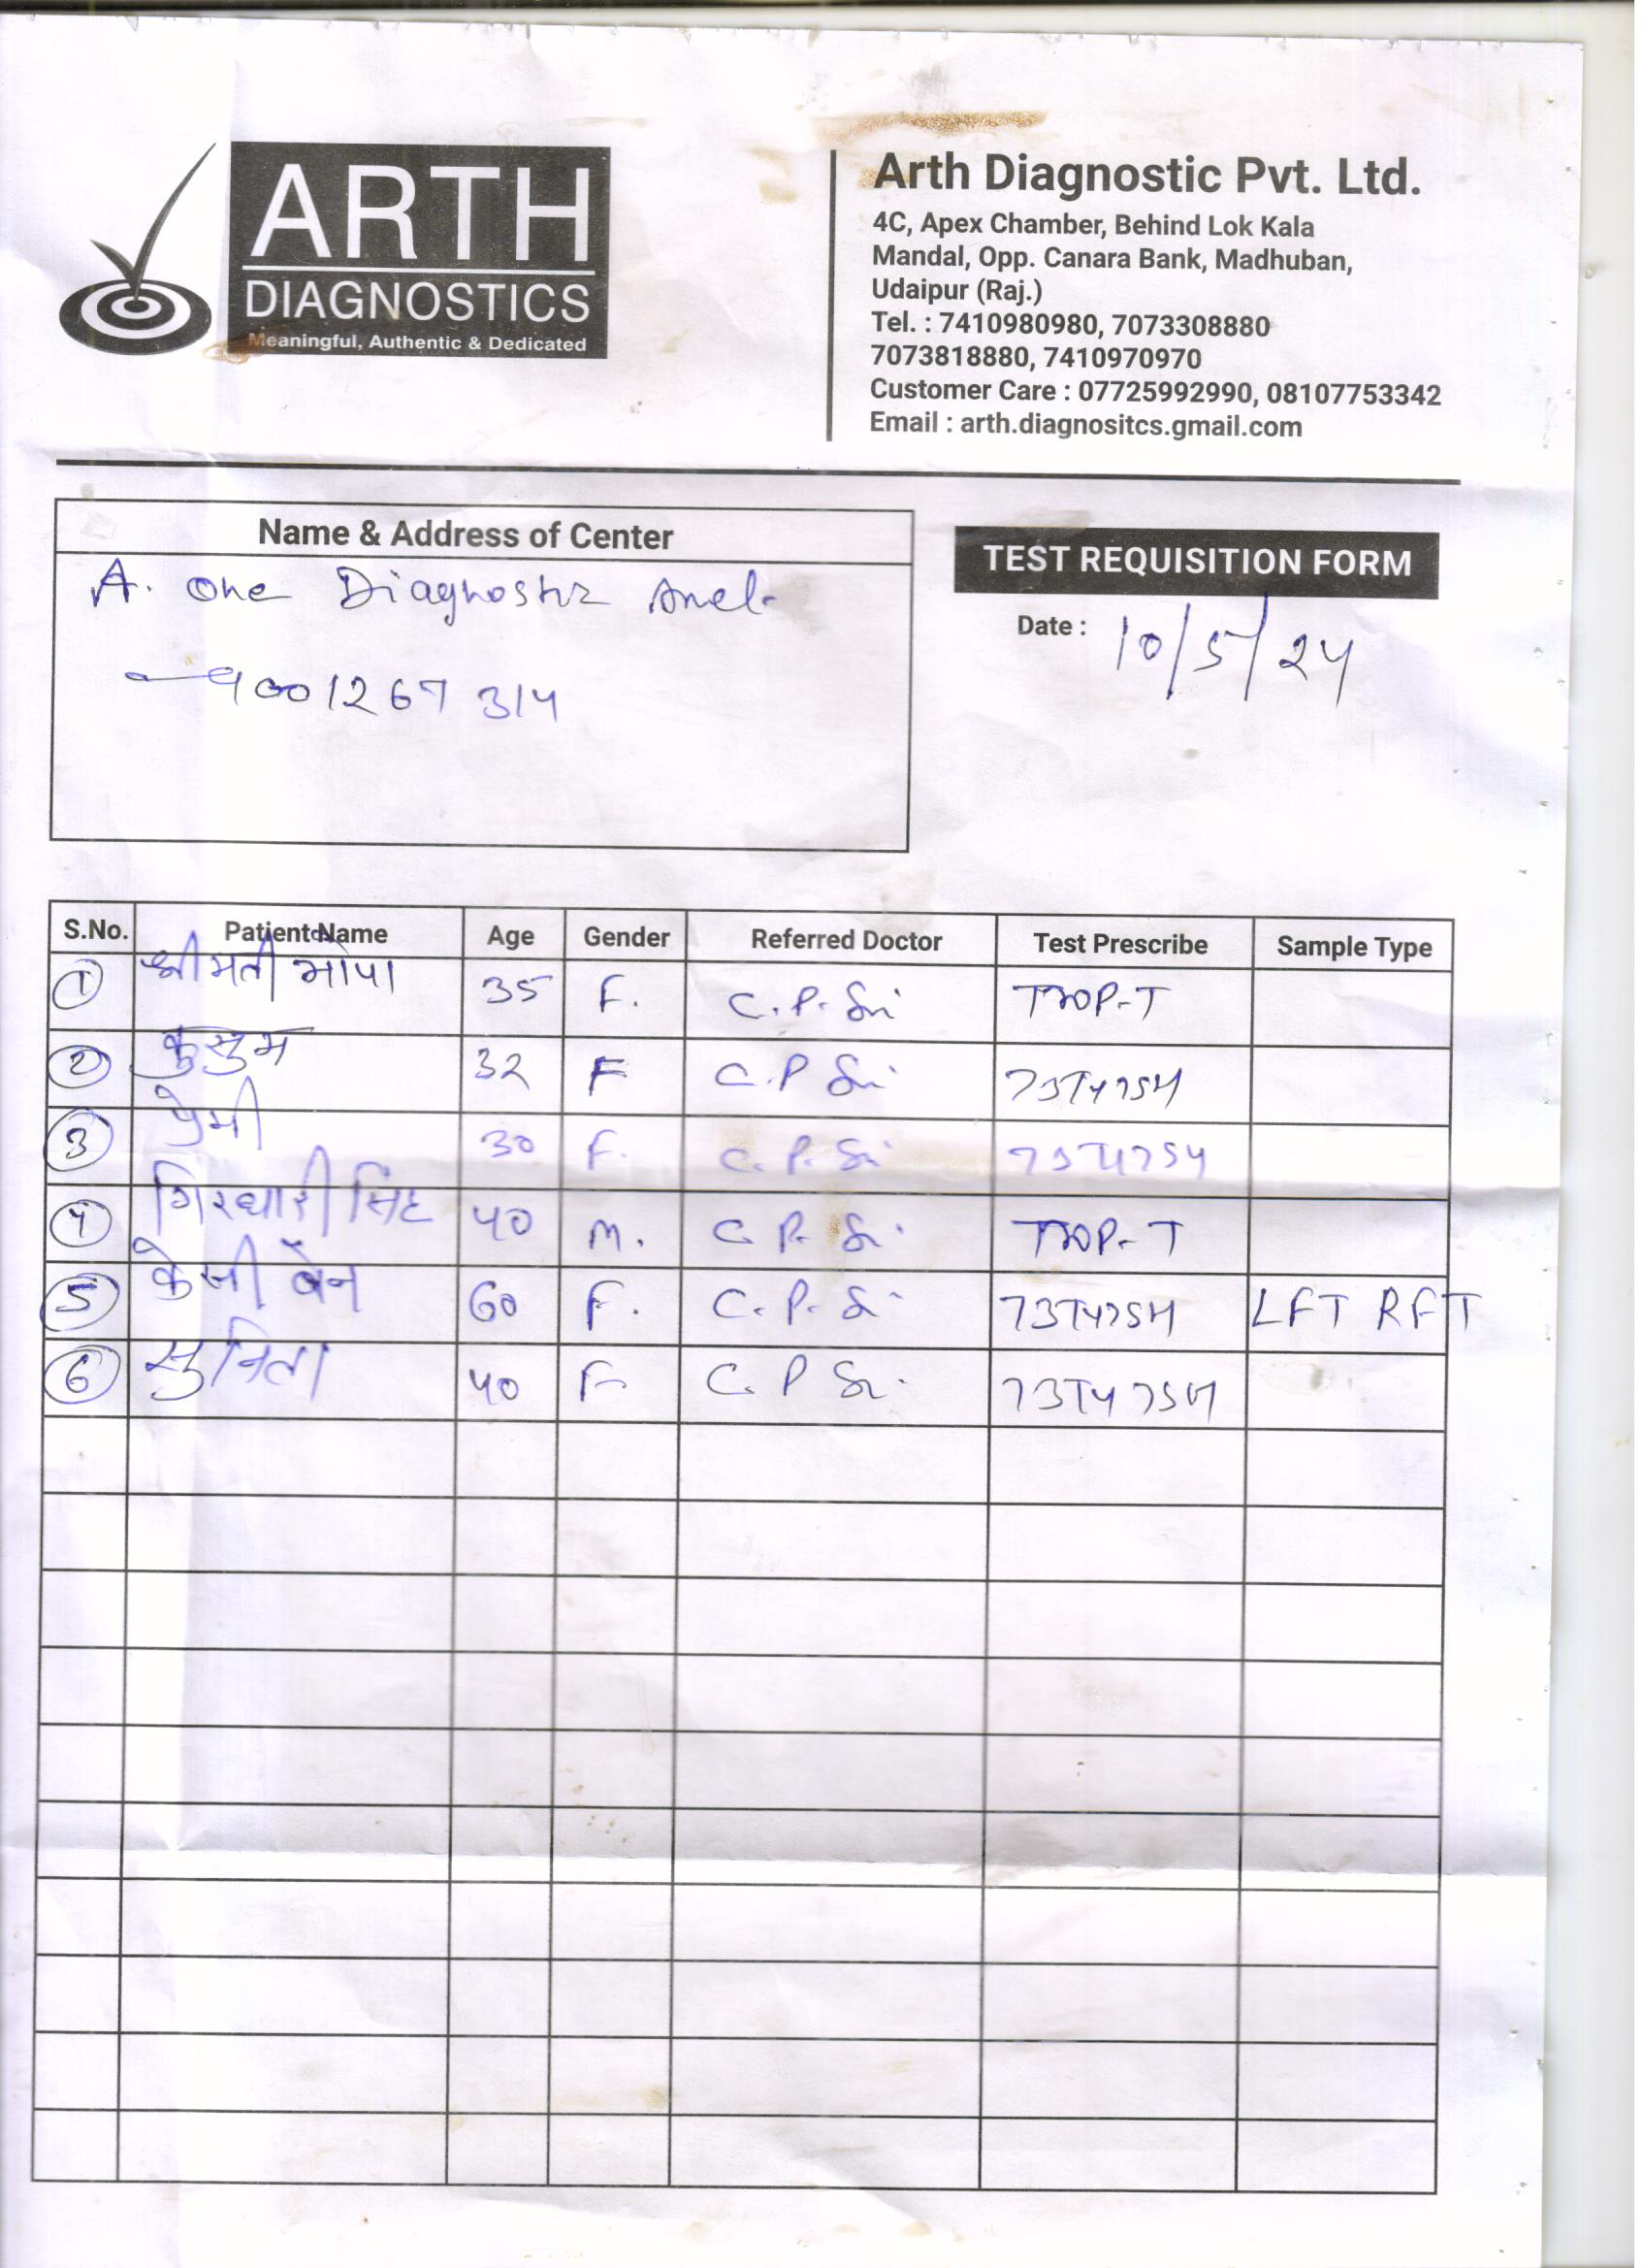 ARTH
DIAGNOSTICS
Meaningful, Authentic & Dedicated
Arth Diagnostic Pvt. Ltd.
4C, Apex Chamber, Behind Lok Kala
Mandal, Opp. Canara Bank, Madhuban,
Udaipur (Raj.)
Tel. : 7410980980, 7073308880
7073818880, 7410970970
Customer Care : 07725992990, 08107753342
Email : arth.diagnositcs.gmail.com
Name & Address of Center
A. One Diagnostic
9001267314
TEST REQUISITION FORM
Date : 10/5/24
S.No. Patient Name Age Gender Referred Doctor Test Prescribe Sample Type
1 श्रीमती 35 F. C.P. TROP-T
2 कुसुम 32 F C.P T3T4TSH
3 प्रेमी 30 F. C.P. T3T4TSH
4 गिरधारी सिंह 40 M. C.P. TROP-T
5 केसी बेन 60 F. C.P. T3T4TSH LFT RFT
6 सुनिता 40 F C.P T3T4TSH